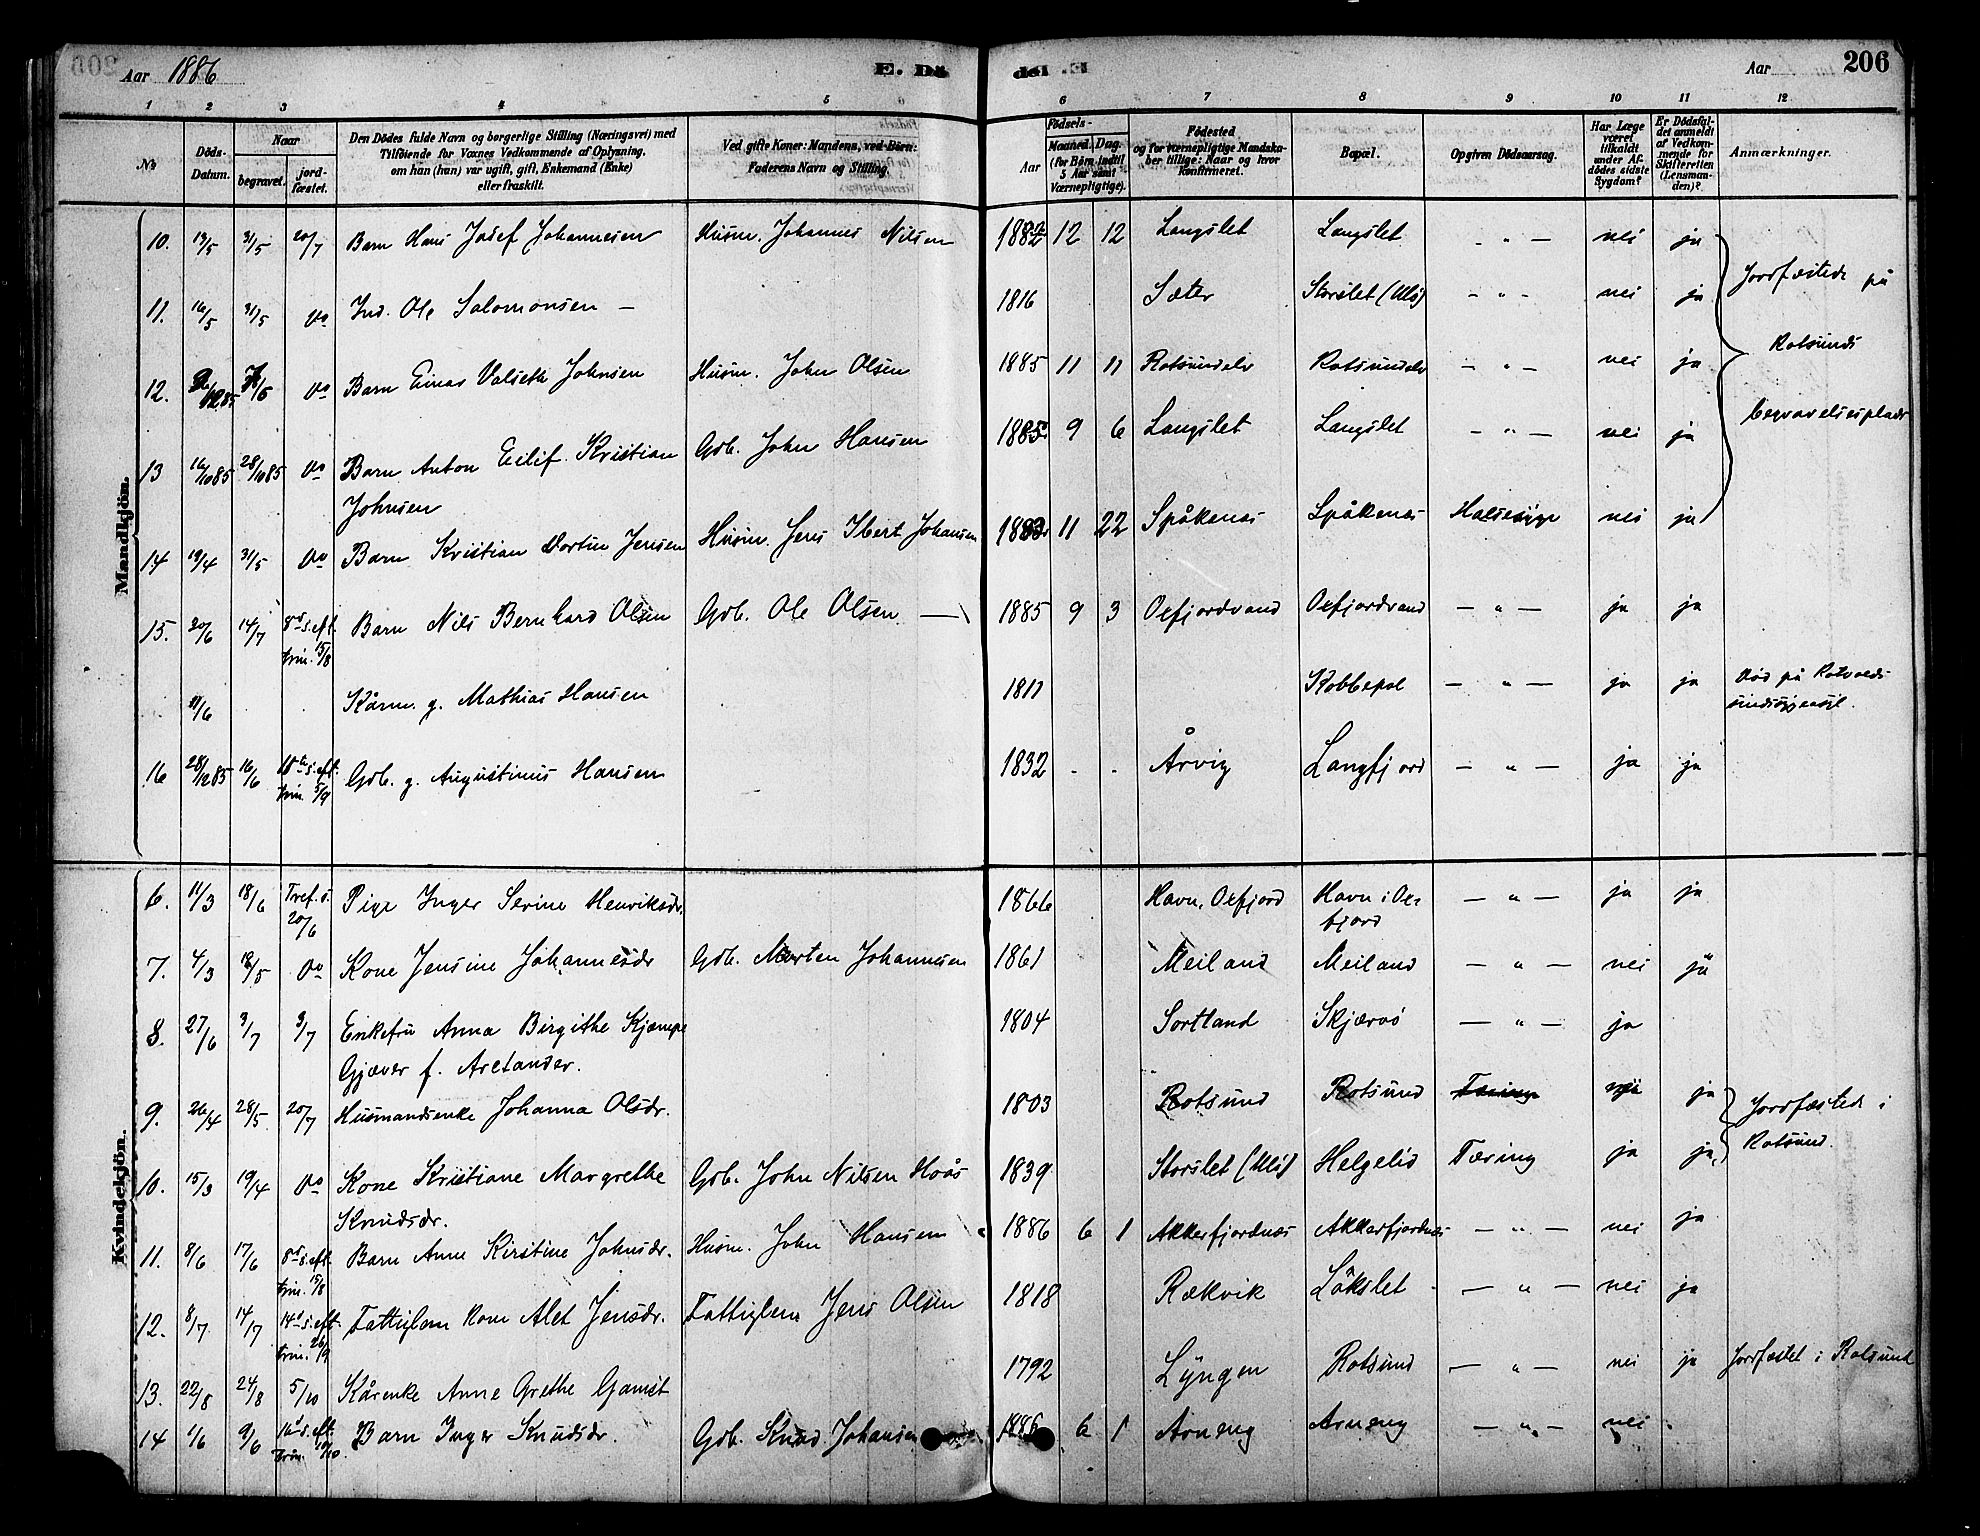 Aar 1886
E. Dö
del .E
Aar
206
1 2 3 4 5 6 7 8 9 10 11 12
No
Döds-Datum.
Naar
begravet.
jord-fæstet.
Den Dödes fulde Navn og borgerlige Stilling (Næringsvei) med
Tilföiende for Voxnes Vedkommende af Oplysning,
om han (hun) var ugift, gift, Enkemand (Enke)
eller fraskilt.
Ved gifte Koner: Mandens, ved Börn:
Faderens Navn og Stilling.
Födsels-
Aar
Maaned Dag
(for Börn indtil
5 Aar samt
Værnepligtige).
Födested
og for værnepligtige Mandska-
ber tillige: Naar og hvor
konfirmeret.
Bopæl.
Opgiven Dödsaarsag.
Har Læge
været
tilkaldt
under Af-
dödes sidste
Sygdom?
Er Dödsfal-
det anmeldt
af Vedkom-
mende for
Skifteretten
(Lensman-
den)?
Anmærkninger.
Mandkjön.
10. 19/5 31/5 20/7 Barn Hans Josef Johannesen Husm. Johannes Nilsen 12 12 Langslet Langslet - " - nei ja
11. 16/5 31/5 do Ind. Ole Salomonsen — 1816 Sæter Storslet (Ulö) - " - nei ja
Jordfæstede på
12. do Barn Einar Valseth Johnsen Husm. John Olsen 1885 11 11 Rotsundelv Rotsundelv - " - nei ja
Rotsunds
13 16/10 85 28/10 85 do Barn Anton Eilif Kristian Gdb. John Hansen 1885 9 6 Langslet Langslet - " - nei ja
begravelsesplads
Johnsen
14 19/4 31/5 do Barn Kristian Mortin Jensen Husm. Jens Ibert Johansen 11 22 Spåkenes Spåkenes Halsesyge nei ja
15. 20/6 14/7 8d s. eft. Barn Nils Bernhard Olsen Gdb. Ole Olsen — 1885 9 3 Oxfjordvand Oxfjordvand - " - ja ja
trin. 15/8
11/6 Kårm. g. Mathias Hansen 1811 Kobbepol - " - ja ja Död på Rotvolds
sindssygeasyl.
16 28/12 85 16/6 s. eft. Gdb. g. Augustinus Hansen 1832 . . Årvig Langfjord - " - ja ja
trin. 5/9
Kvindekjön.
6. 11/3 18/6 Tref. s. Pige Inger Serine Henriksdr. 1866 Havn, Oxfjord Havn i Ox- - " - ja ja
20/6 fjord
7. 4/3 18/5 do Kone Jensine Johannesdr Gdb. Morten Johannesen 1861 Meiland Meiland - " - nei ja
8. 27/6 3/7 3/7 Enkefru Anna Birgithe Kjæmpe 1804 Sortland Skjærvö - " - ja
Gjæver f. Aretander.
9. 26/4 28/5 20/7 Husmandsenke Johanna Olsdr. 1803 Rotsund Rotsund Tæring ja Jordfæstede i
Rotsund.
10. 15/3 19/4 do Kone Kristiane Margrethe Gdb. John Nilsen Hoås 1839 Storslet (Ulö) Helgelid Tæring ja ja
Knudsdr.
11. 8/6 17/6 8d s. eft. Barn Anne Kirstine Johnsdr. Husm. John Hansen 1886 6 1 Akkerfjordnæs Akkerfjordnæs - " - nei ja
trin. 15/8
12. 8/7 14/7 14d s. eft. Fattiglem Kone Alet Jensdr. Fattiglem Jens Olsen 1818 Rækvik Lökslet - " - nei ja
trin. 26/9
13. 22/8 24/8 5/10 Kårenke Anne Grethe Gamst 1792 Lyngen Rotsund - " - nei ja Jordfæstet i Rotsund
14 1/6 9/6 16d s. eft. Barn Inger Knudsdr. Gdb. Knud Johansen 1886 6 1 Arneng Arneng - " - nei
trin. 10/10.